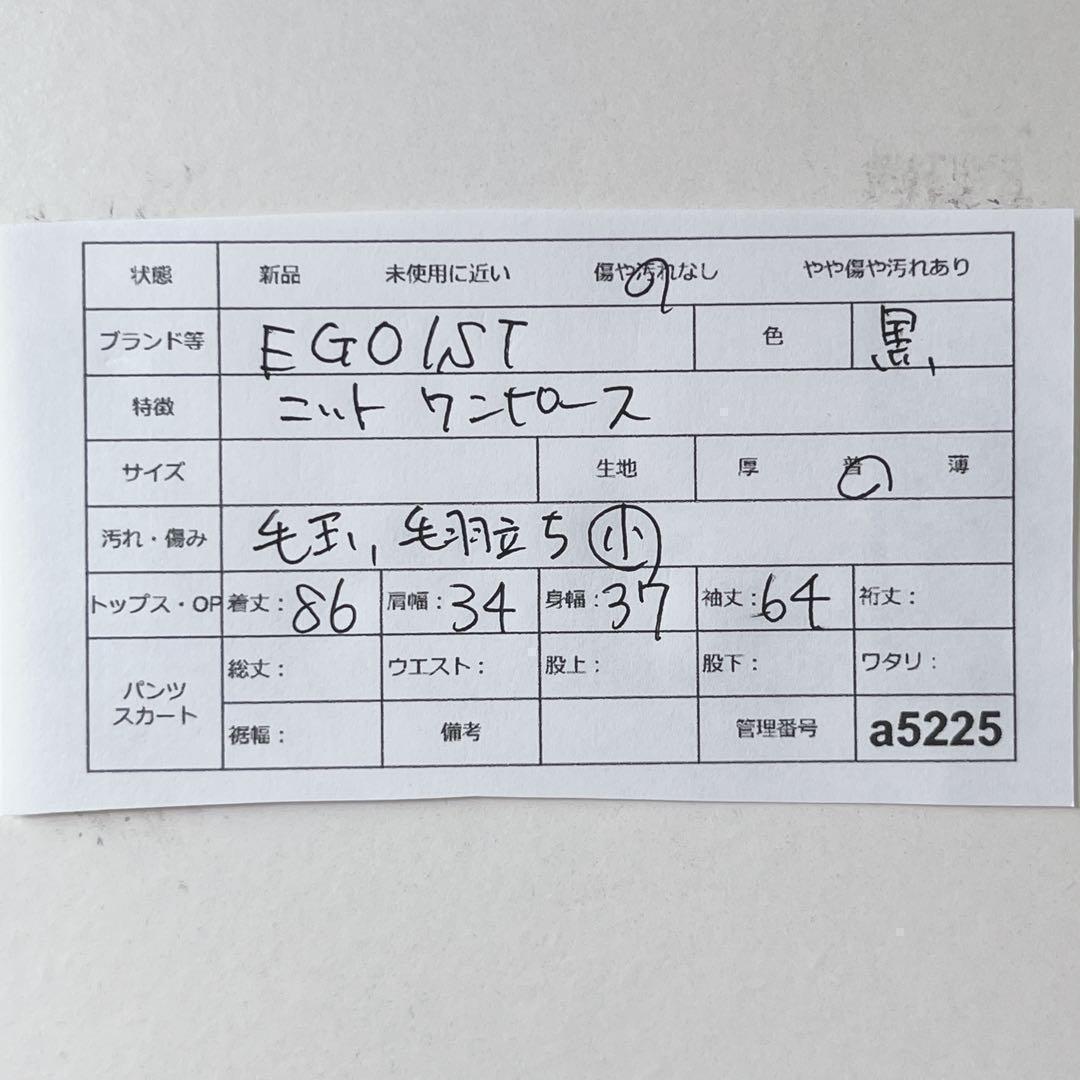 状態 新品 未使用に近い 傷や汚れなし やや傷や汚れあり
ブランド等 EGOIST 色 黒
特徴 ニット ワンピース
サイズ 生地 厚 普 薄
汚れ・傷み 毛玉、毛羽立ち 小
トップス・OP 着丈：86 肩幅：34 身幅：37 袖丈：64 裄丈：
パンツ 総丈： ウエスト： 股上： 股下： ワタリ：
スカート 裾幅： 備考 管理番号 a5225